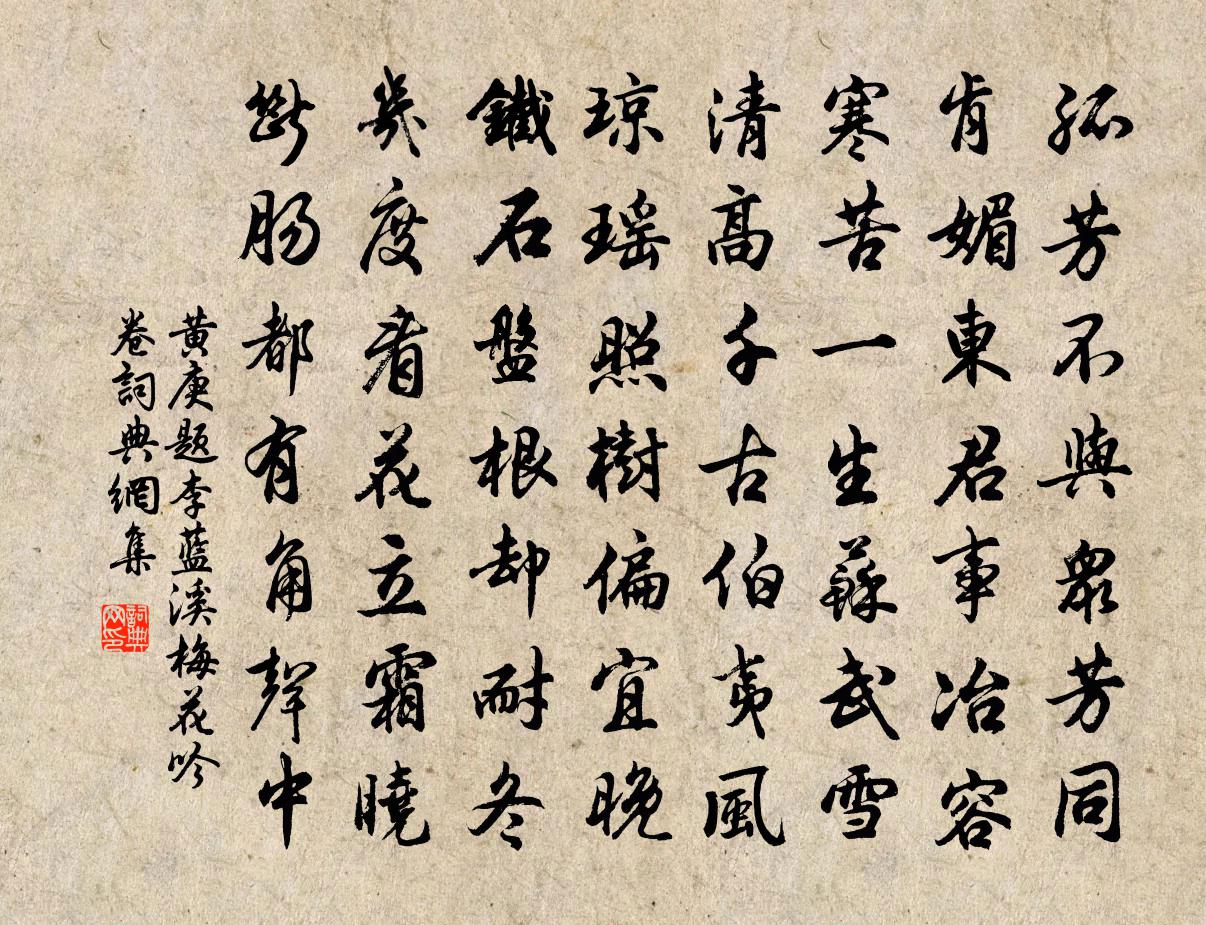 孤芳不與眾芳同
肯媚東君事冶容
寒苦一生蘇武雪
清高千古伯夷風
琼瑶照樹偏宜晚
鐵石盤根却耐冬
幾度看花立霜曉
斷腸都有角聲中
黄庚题李蓝溪梅花吟
卷詞典網集
詞典网印